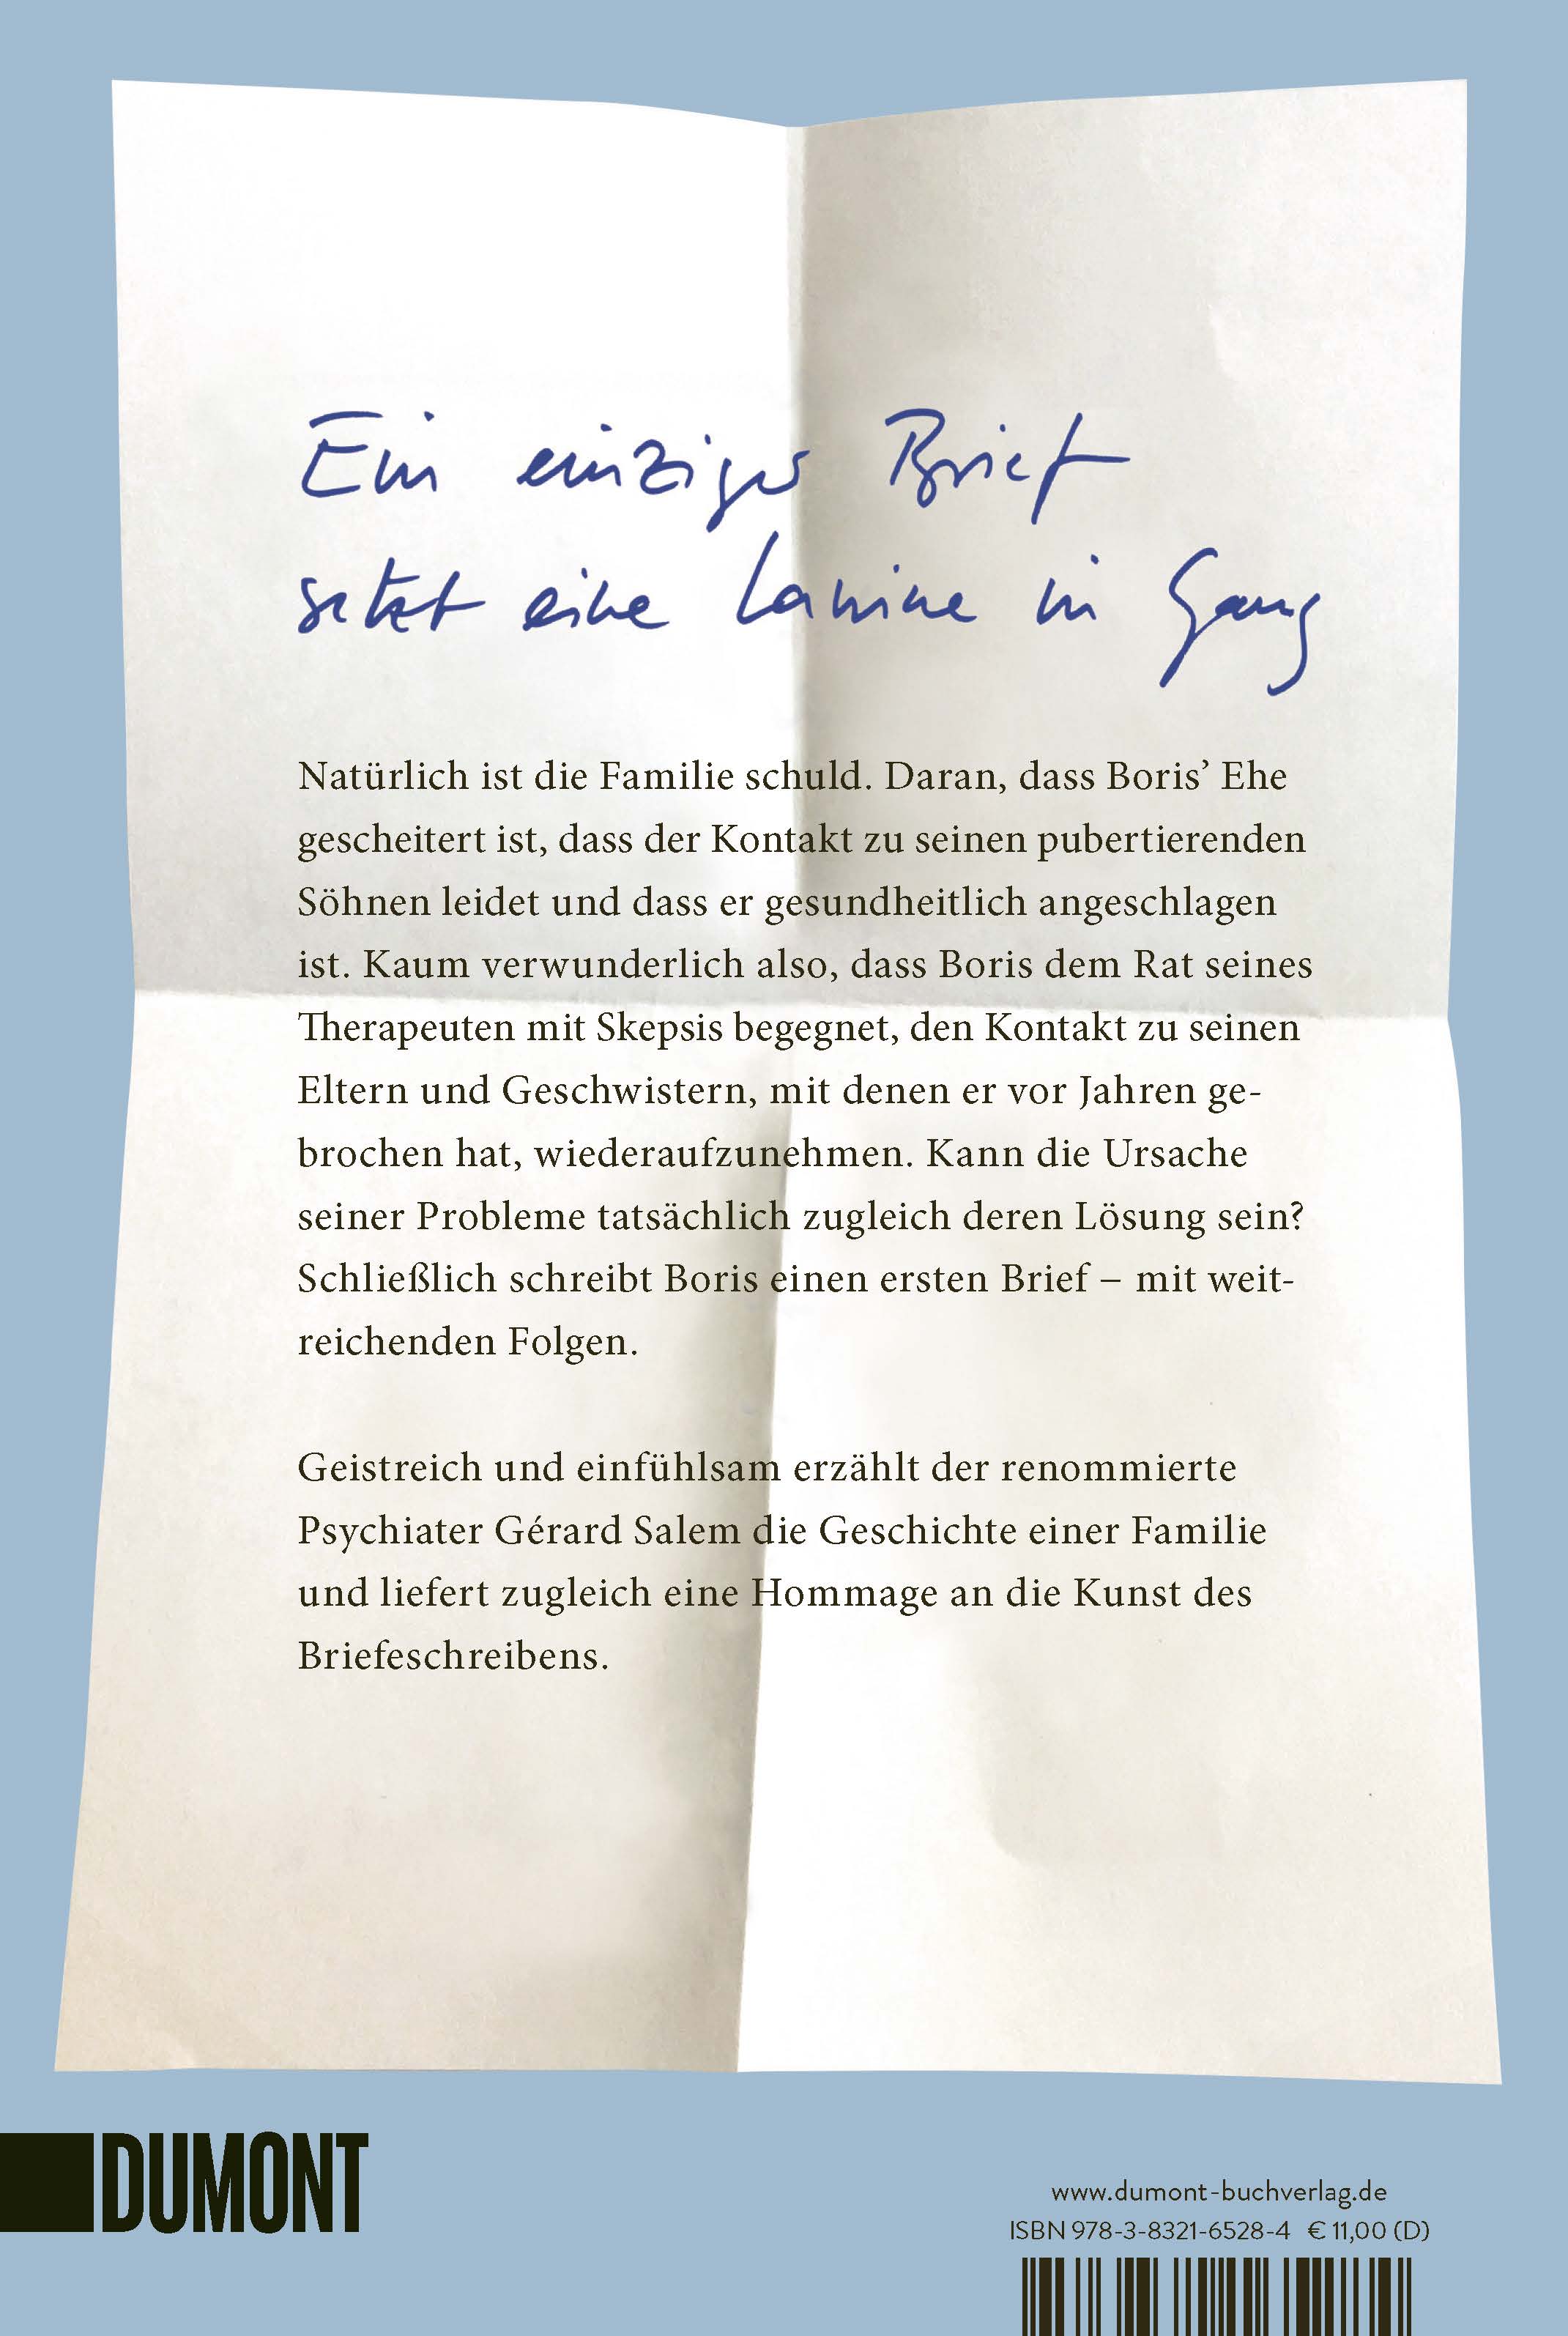 Ein einziger Brief
setzt eine Lawine in Gang
Natürlich ist die Familie schuld. Daran, dass Boris’ Ehe
gescheitert ist, dass der Kontakt zu seinen pubertierenden
Söhnen leidet und dass er gesundheitlich angeschlagen
ist. Kaum verwunderlich also, dass Boris dem Rat seines
Therapeuten mit Skepsis begegnet, den Kontakt zu seinen
Eltern und Geschwistern, mit denen er vor Jahren ge-
brochen hat, wiederaufzunehmen. Kann die Ursache
seiner Probleme tatsächlich zugleich deren Lösung sein?
Schließlich schreibt Boris einen ersten Brief – mit weit-
reichenden Folgen.
Geistreich und einfühlsam erzählt der renommierte
Psychiater Gérard Salem die Geschichte einer Familie
und liefert zugleich eine Hommage an die Kunst des
Briefeschreibens.
DUMONT
www.dumont-buchverlag.de
ISBN 978-3-8321-6528-4 € 11,00 (D)